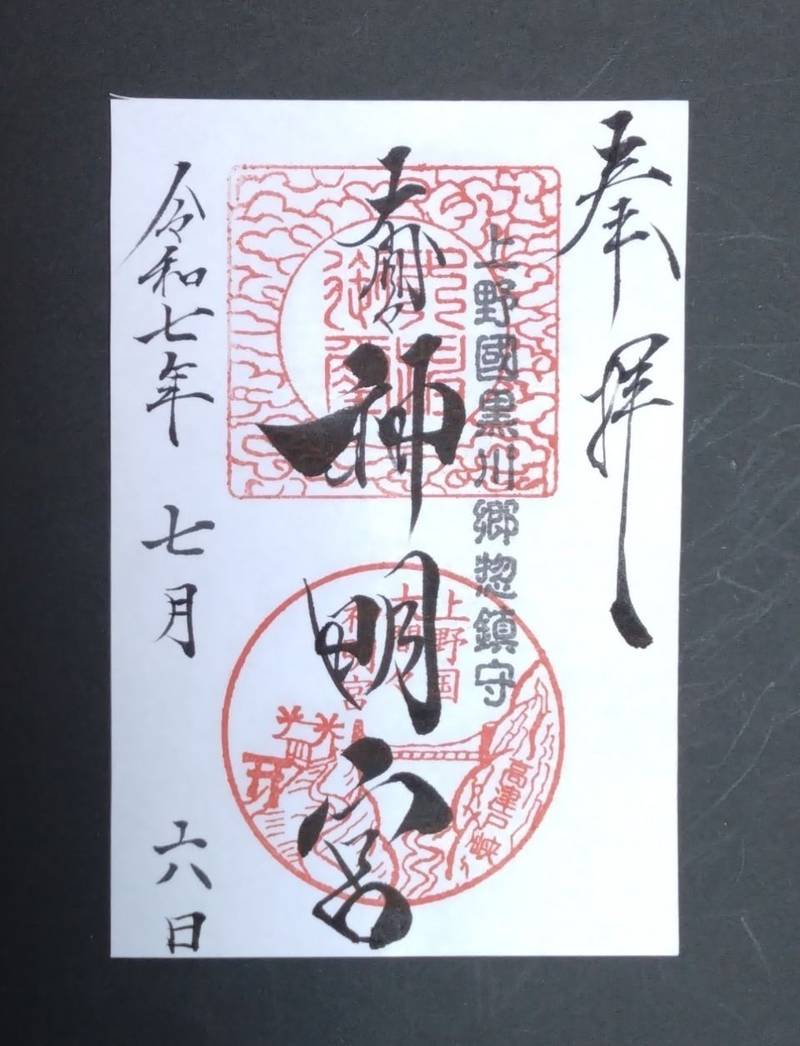 奉拝
上野國黒川郷惣鎮守
大間々
神明宮
令和七年 七月 六日
上野国
大間々
神明宮
高津戸峡